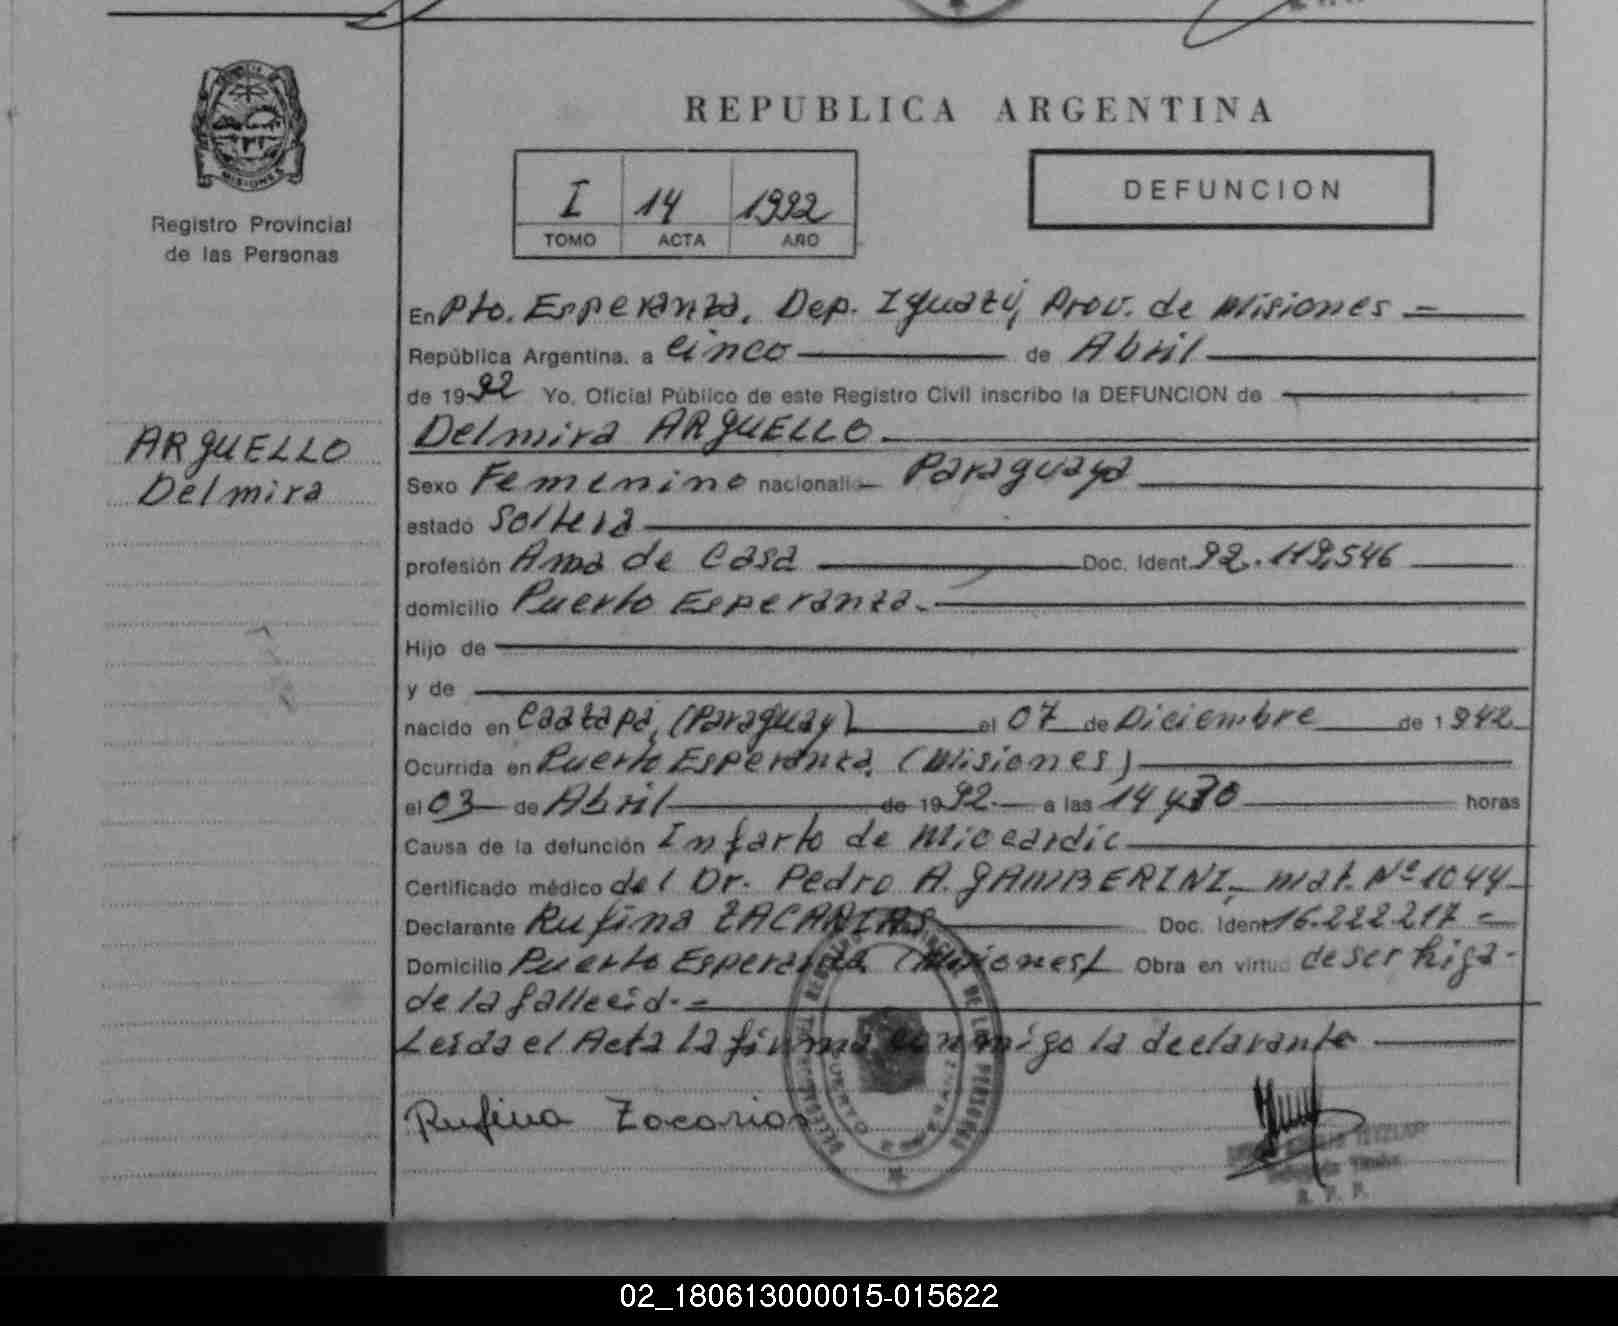 REPUBLICA ARGENTINA
MISIONES
Registro Provincial
de las Personas
I 14 1992
TOMO ACTA AÑO
DEFUNCION
En Pto. Esperanza, Dep. Iguazú, Prov. de Misiones
República Argentina, a Cinco de Abril
de 1992 Yo, Oficial Público de este Registro Civil inscribo la DEFUNCION de
ARGUELLO
Delmira
Delmira ARGUELLO.
Sexo Femenino nacionali Paraguaya
estado Soltera
profesión Ama de Casa Doc. Ident. 92.119.546
domicilio Puerto Esperanza.
Hijo de
y de
nacido en Caazapá, (Paraguay) el 07 de Diciembre de 1942
Ocurrida en Puerto Esperanza, (Misiones)
el 03 de Abril de 1992 a las 14 y 30 horas
Causa de la defunción Infarto de Miocardio
Certificado médico del Dr. Pedro A. GAMBERINI, mat. Nº 1044
Declarante Rufina ZACARIAS Doc. Ident 16.222.217
Domicilio Puerto Esperanza (Misiones) Obra en virtud de ser higa
de la fallecid.
Leida el Acta la firma conmigo la declarante
Rufina Zacarias
R. P. P.
02_180613000015-015622